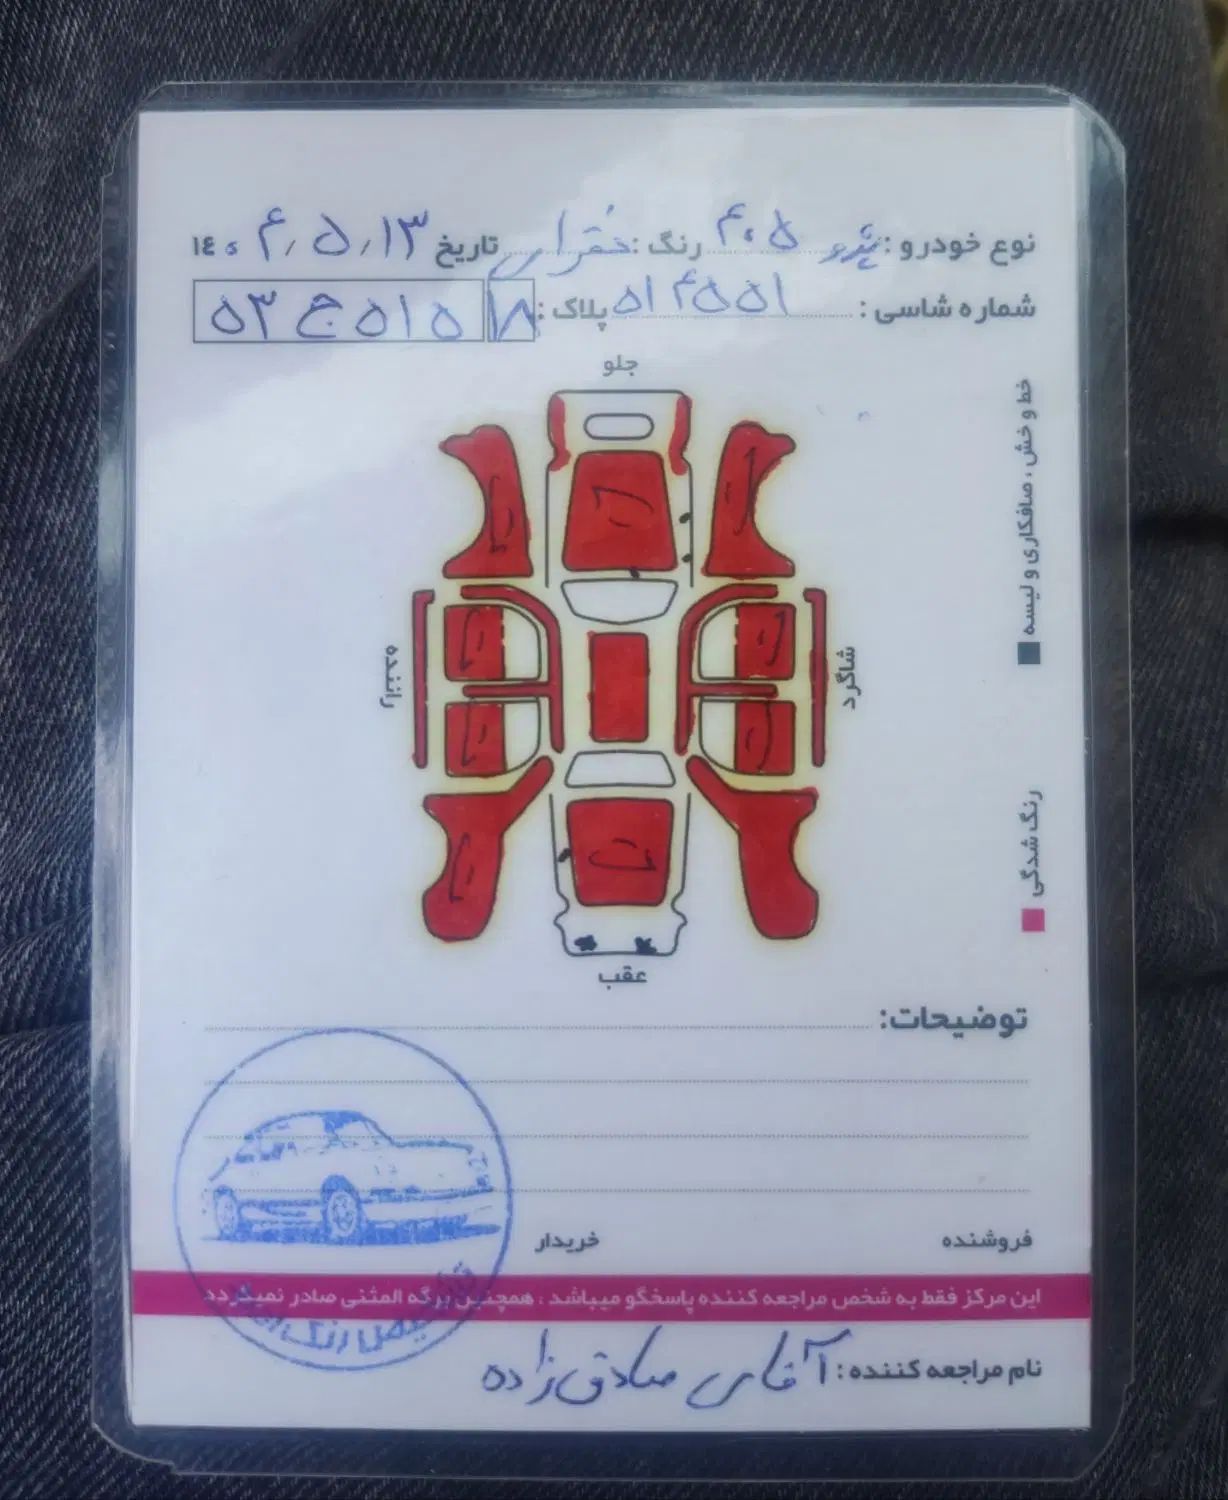 نوع خودرو : پژو ۴۰۵ رنگ : نقرابی تاریخ ۱۳ / ۵ / ۴ ۱٤۰
شماره شاسی : ۵۱۴۵۵۱ پلاک : ۱۸ ۵۱۵ ج ۵۳
جلو
خط و خش ، صافکاری و لیسه
راننده
شاگرد
رنگ شدگی
عقب
توضیحات:
فروشنده خریدار
این مرکز فقط به شخص مراجعه کننده پاسخگو میباشد ، همچنین برگه المثنی صادر نمیگردد
نام مراجعه کننده : آقای صادق زاده